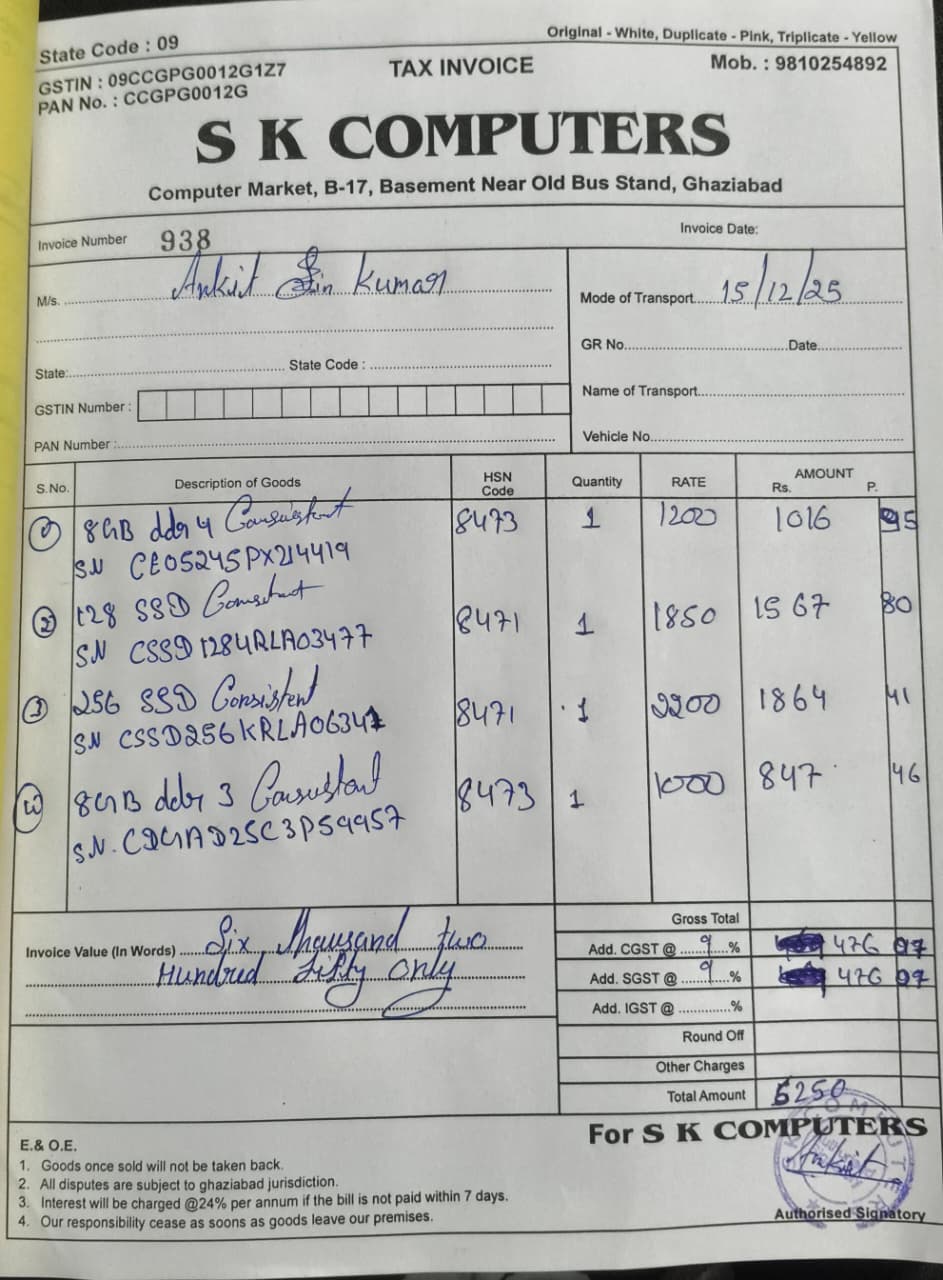 State Code : 09
Original - White, Duplicate - Pink, Triplicate - Yellow
GSTIN : 09CCGPG0012G1Z7
TAX INVOICE
Mob. : 9810254892
PAN No. : CCGPG0012G
S K COMPUTERS
Computer Market, B-17, Basement Near Old Bus Stand, Ghaziabad
Invoice Number 938
Invoice Date:
M/s. Ankit Kumar
Mode of Transport 15/12/25
GR No. Date
State: State Code :
Name of Transport
GSTIN Number :
PAN Number :
Vehicle No.
S.No. Description of Goods HSN Code Quantity RATE AMOUNT Rs. P.
1 8GB ddr 4 Consistent 8473 1 1200 1016 95
SN CE05245PX214419
2 128 SSD 8471 1 1850 1567 80
SN CSSD1284RLA03477
3 256 SSD Consistent 8471 1 2200 1864 41
SN
8GB ddr 3 8473 1 1000 847 46
S.N.
Gross Total
Invoice Value (In Words) Six Thousand two
Add. CGST @ 9 % 476 97
Hundred Fifty Only
Add. SGST @ 9 % 476 97
Add. IGST @ %
Round Off
Other Charges
Total Amount 6250
For S K COMPUTERS
E.& O.E.
1. Goods once sold will not be taken back.
2. All disputes are subject to ghaziabad jurisdiction.
3. Interest will be charged @24% per annum if the bill is not paid within 7 days.
4. Our responsibility cease as soons as goods leave our premises.
Ankit
Authorised Signatory